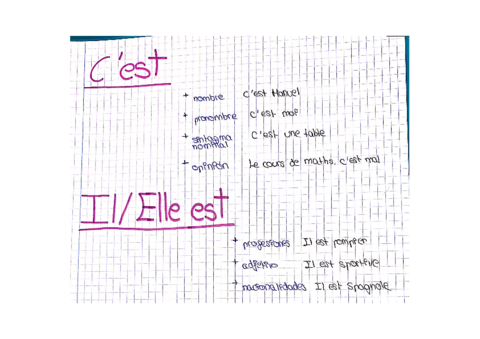 C'est
+ nombre C'est Manuel
+ pronombre C'est moi
+ sintagma nominal C'est une table
+ opinión Le cours de maths, c'est mal
Il/Elle est
+ profesiones Il est pompier
+ adjetivo Il est sportive
+ nacionalidades Il est Spagnole